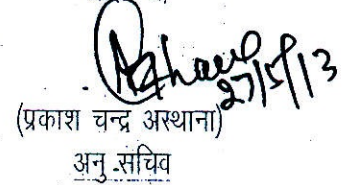 27/5/13
(प्रकाश चन्द्र अस्थाना)
अनु सचिव